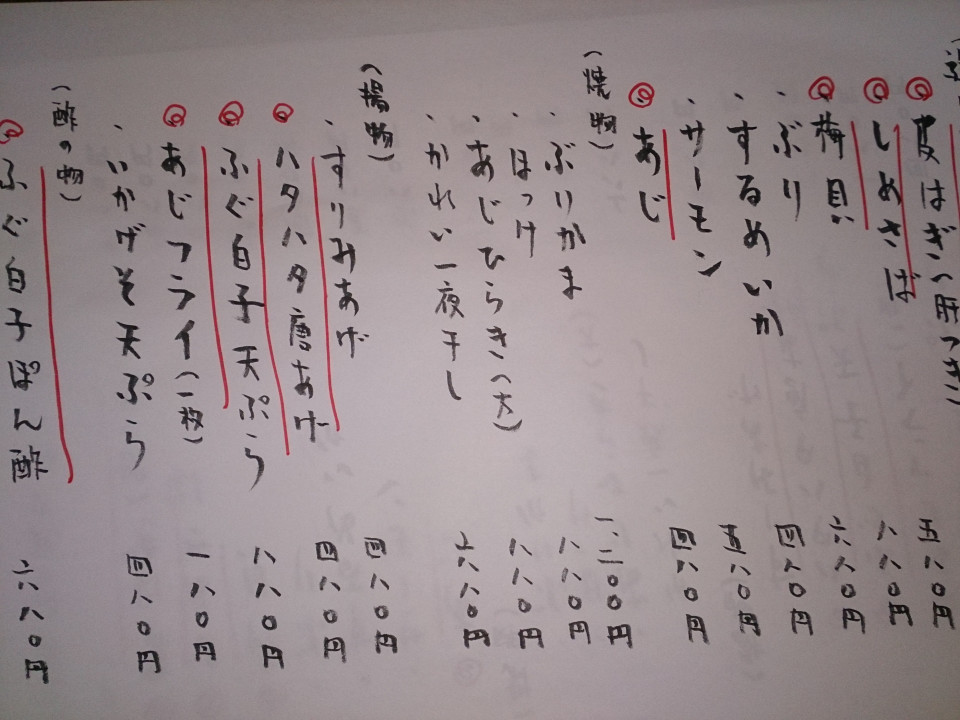 皮はぎ(肝つき)
しめさば 五八0円
梅貝 八八0円
・ぶり 六八0円
・するめいか 四八0円
・サーモン 五八0円
あじ 四八0円
(焼物)
・ぶりかま 一、二00円
・ほっけ 八八0円
・あじひらき(大) 八八0円
・かれい一夜干し 六八0円
(揚物)
・すりみあげ 四八0円
ハタハタ唐あげ 四八0円
ふぐ白子天ぷら 八八0円
あじフライ(一枚) 一八0円
・いかげそ天ぷら 四八0円
(酢の物)
ふぐ白子ぽん酢 六八0円